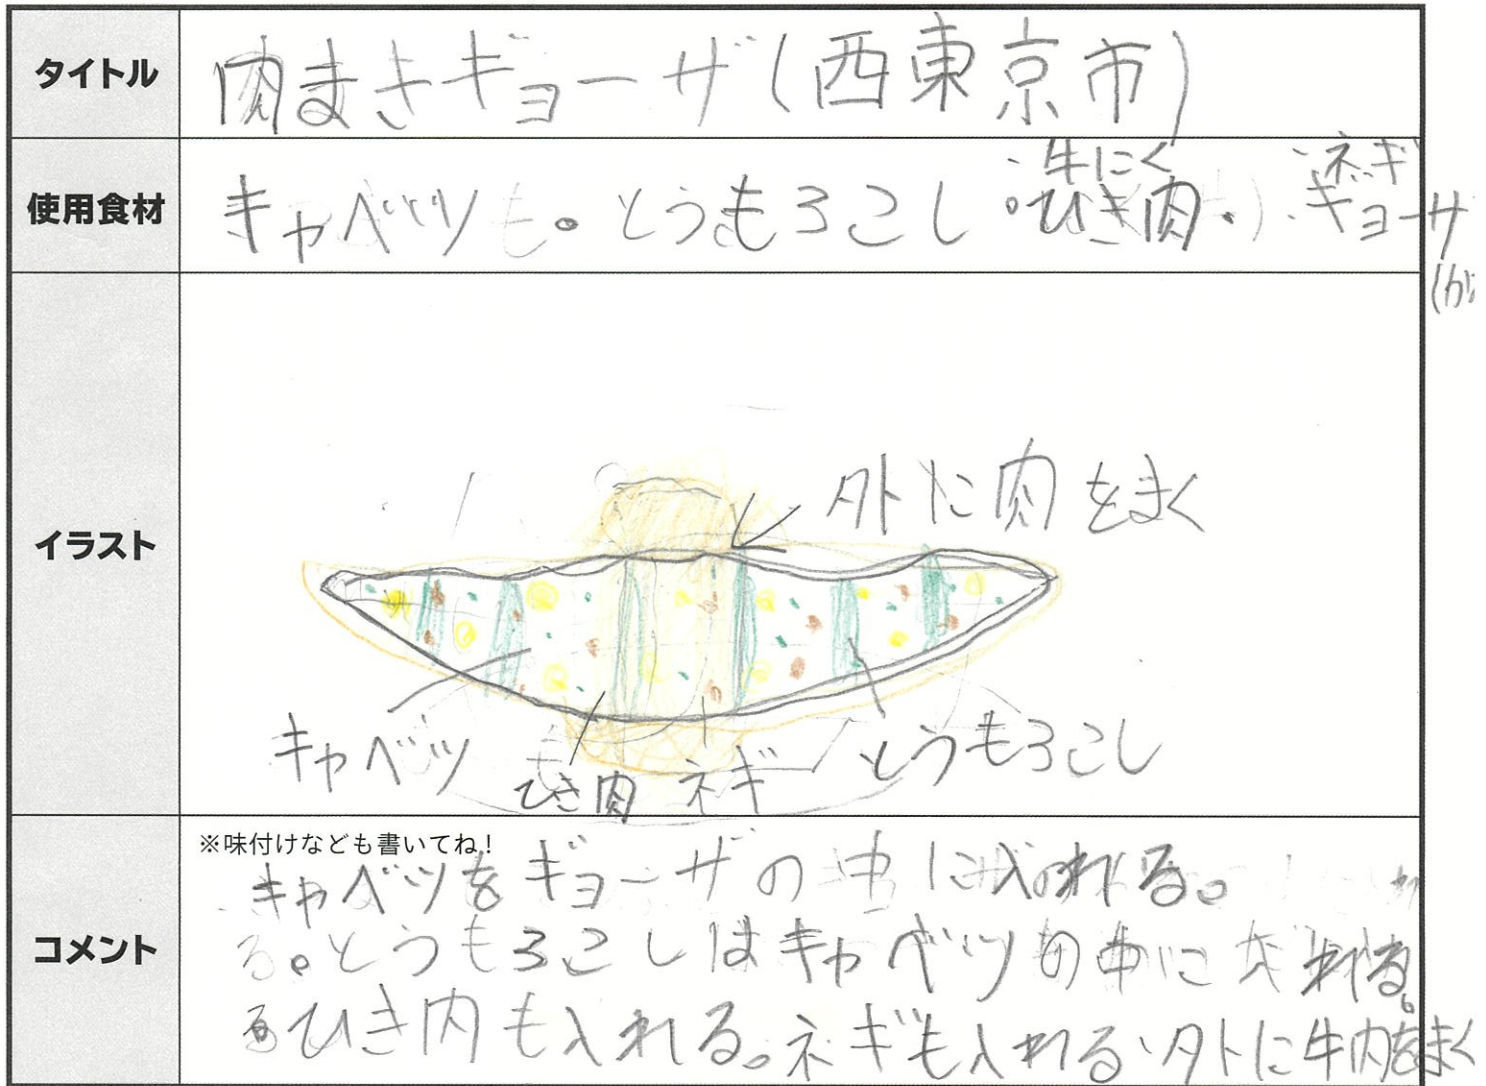 タイトル
肉まきギョーザ(西東京市)
使用食材
牛にく ・ネギ
キャベツ・とうもろこし・ひき肉・ギョーザ
イラスト
外に肉をまく
キャベツ ひき肉 ネギ とうもろこし
コメント
※味付けなども書いてね!
キャベツをギョーザの中に入れる。
とうもろこしはキャベツの中に入れる。
ひき肉も入れる。ネギも入れる、外に牛肉をまく